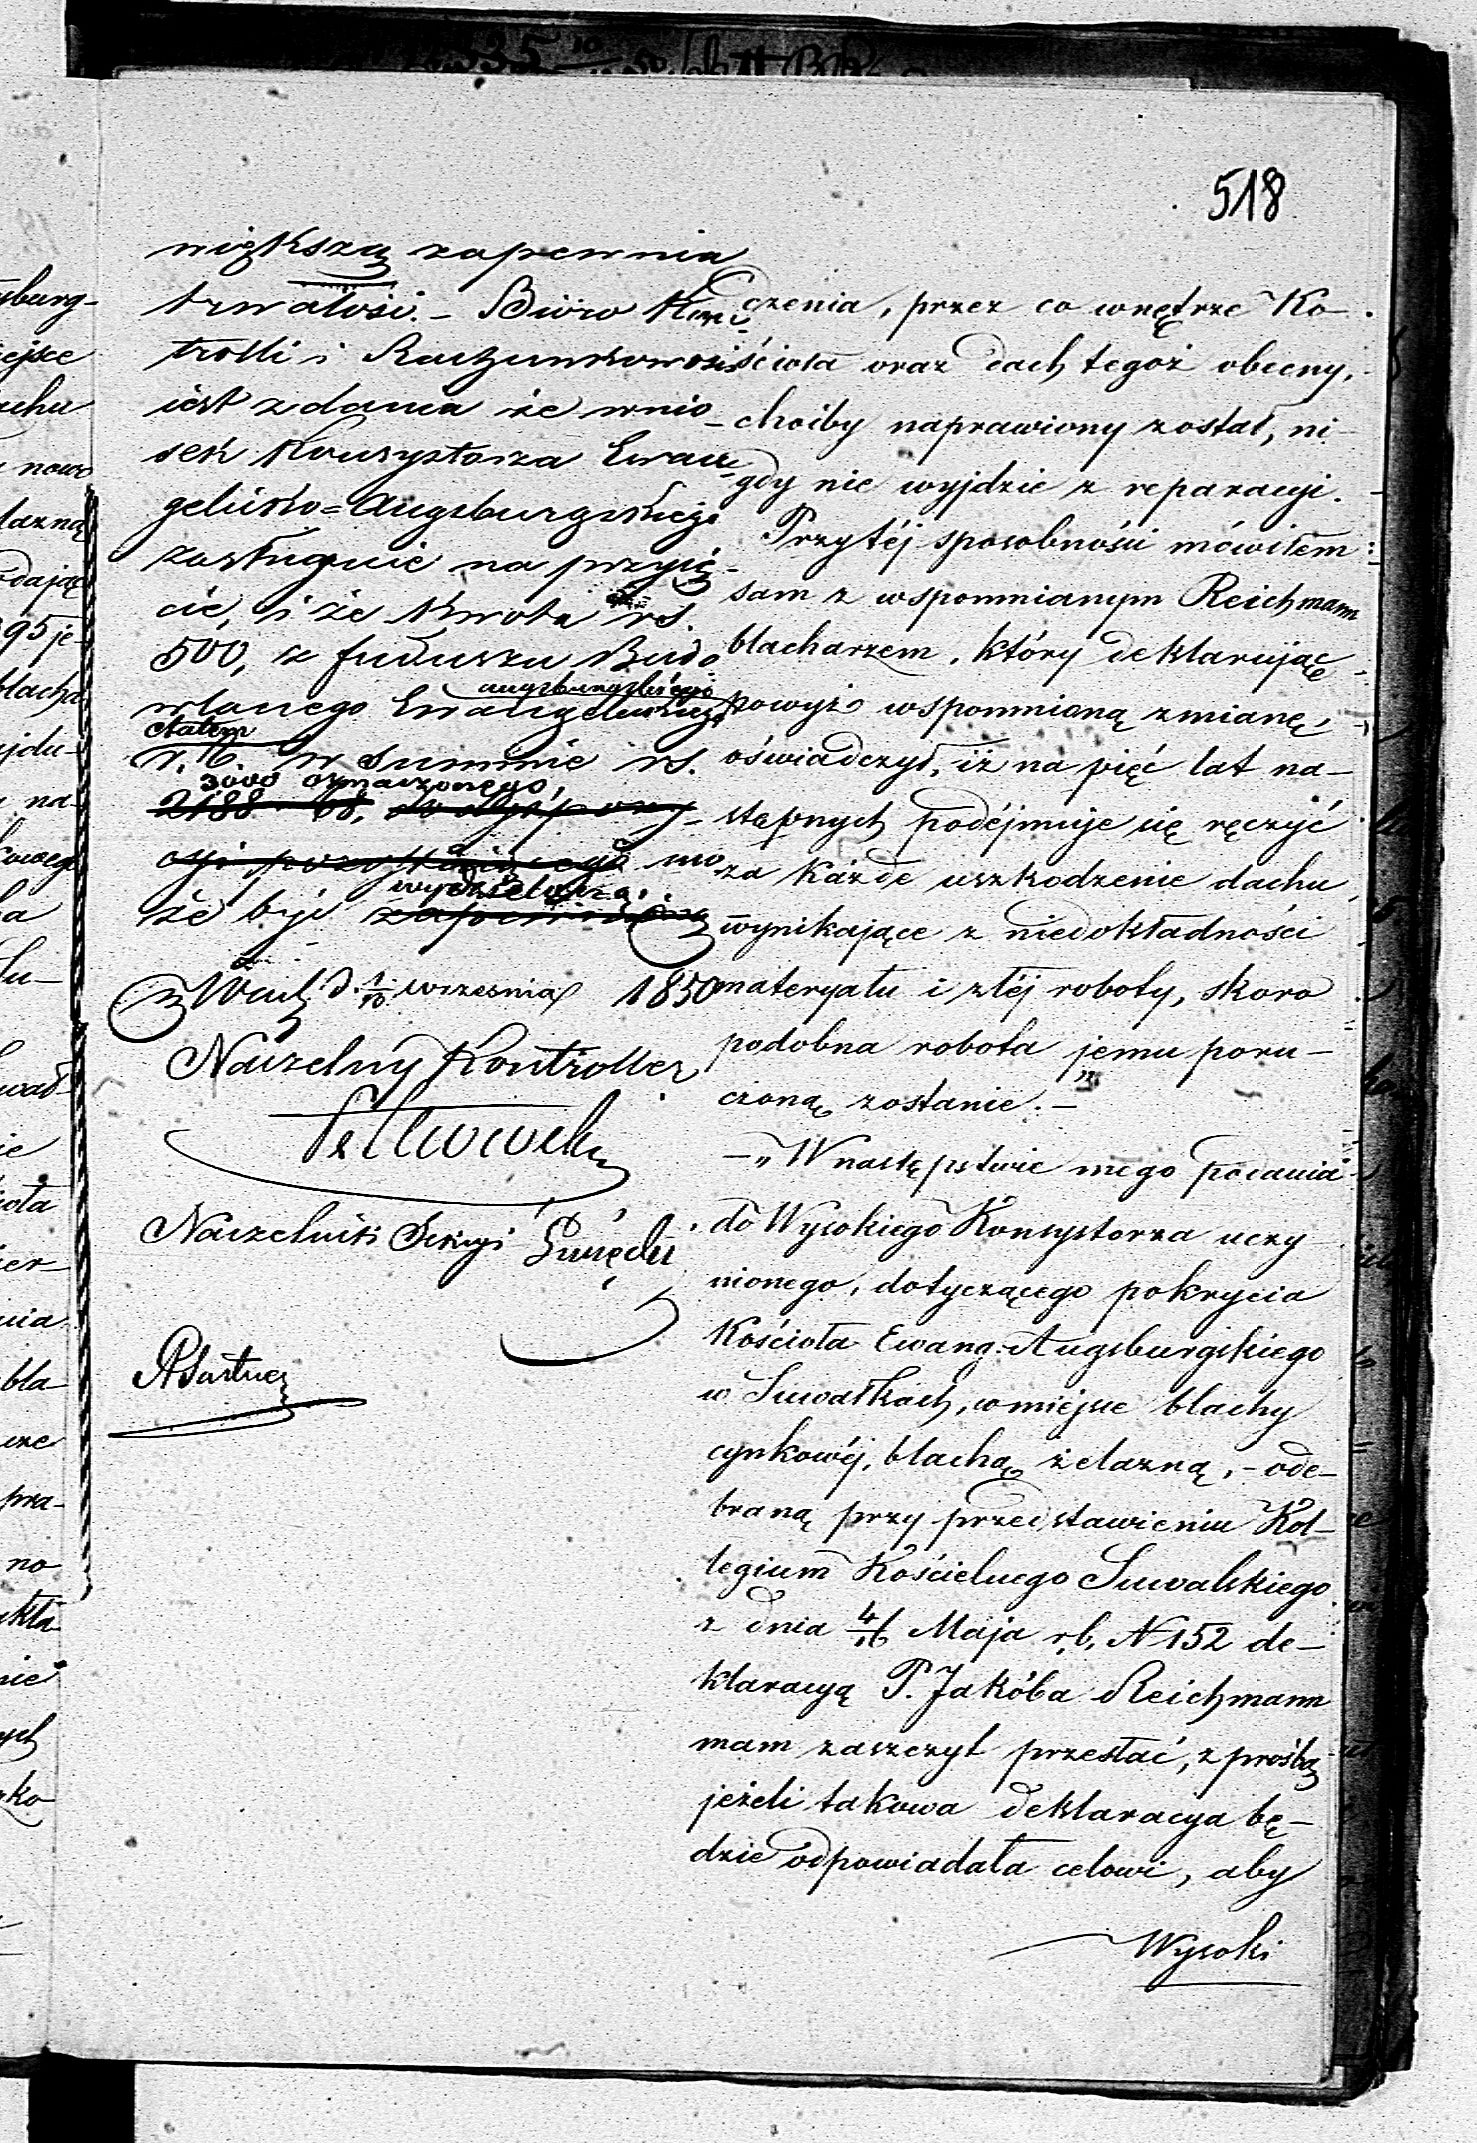 518
większą zapewnia
trwałość. – Biuro Kon-
trolli i Rachunkowości
jest zdania że wnio-
sek Konsystorza Ewan-
gelicko=Augsburgskiego
zasługuje na przyję-
cie, i że kwota rs.
500, z funduszu Budo
wlanego Ewangelickiego
augsburgskiego
etatem
r. b. w summie rs.
3000 oznaczonego,
2188 68, do dyspozy-
cyi pozostającego mo-
że być
wydzieloną.
w Warsz. d. 1/10 września 1850
Naczelny Kontroller
Naczelnik Sekcyi
czenia, przez co wnętrze Ko-
ścioła oraz dach tegoż obecny,
choiby naprawiony został, ni-
gdy nie wyjdzie z reparacyi.
Przytéj sposobności mówiłem
sam z wspomnianym Reichmann
blacharzem, który deklarując
powyżo wspomnioną zmianę,
oświadczył, iż na pięć lat na-
stępnych podéjmuje się ręczyć
za każde uszkodzenie dachu
wynikające z niedokładności
materyału i złéj roboty, skoro
podobna robota jemu poru-
czoną zostanie. –
– „W następstwie mego podania
do Wysokiego Konsystorza uczy
nionego, dotyczącego pokrycia
Kościoła Ewang. Augsburgskiego
w Suwałkach, w miejsce blachy
cynkowéj, blachą żelazną, – ode-
braną przy przedstawieniu Kol-
legium Kościelnego Suwalskiego
z dnia 4/16 Maja r.b. N 152 de-
klaracyą P. Jakóba Reichmann
mam zaszczyt przesłać, z prośbą
jeżeli takowa deklaracya bę-
dzie odpowiadała celowi, aby
Wysoki